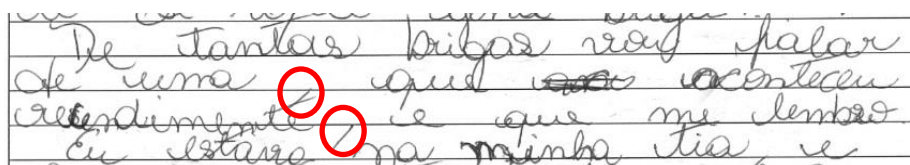 De tantas brigas vou falar
de uma, que aconteceu
recendimente, e que me lembro
Eu estava, na minha tia e